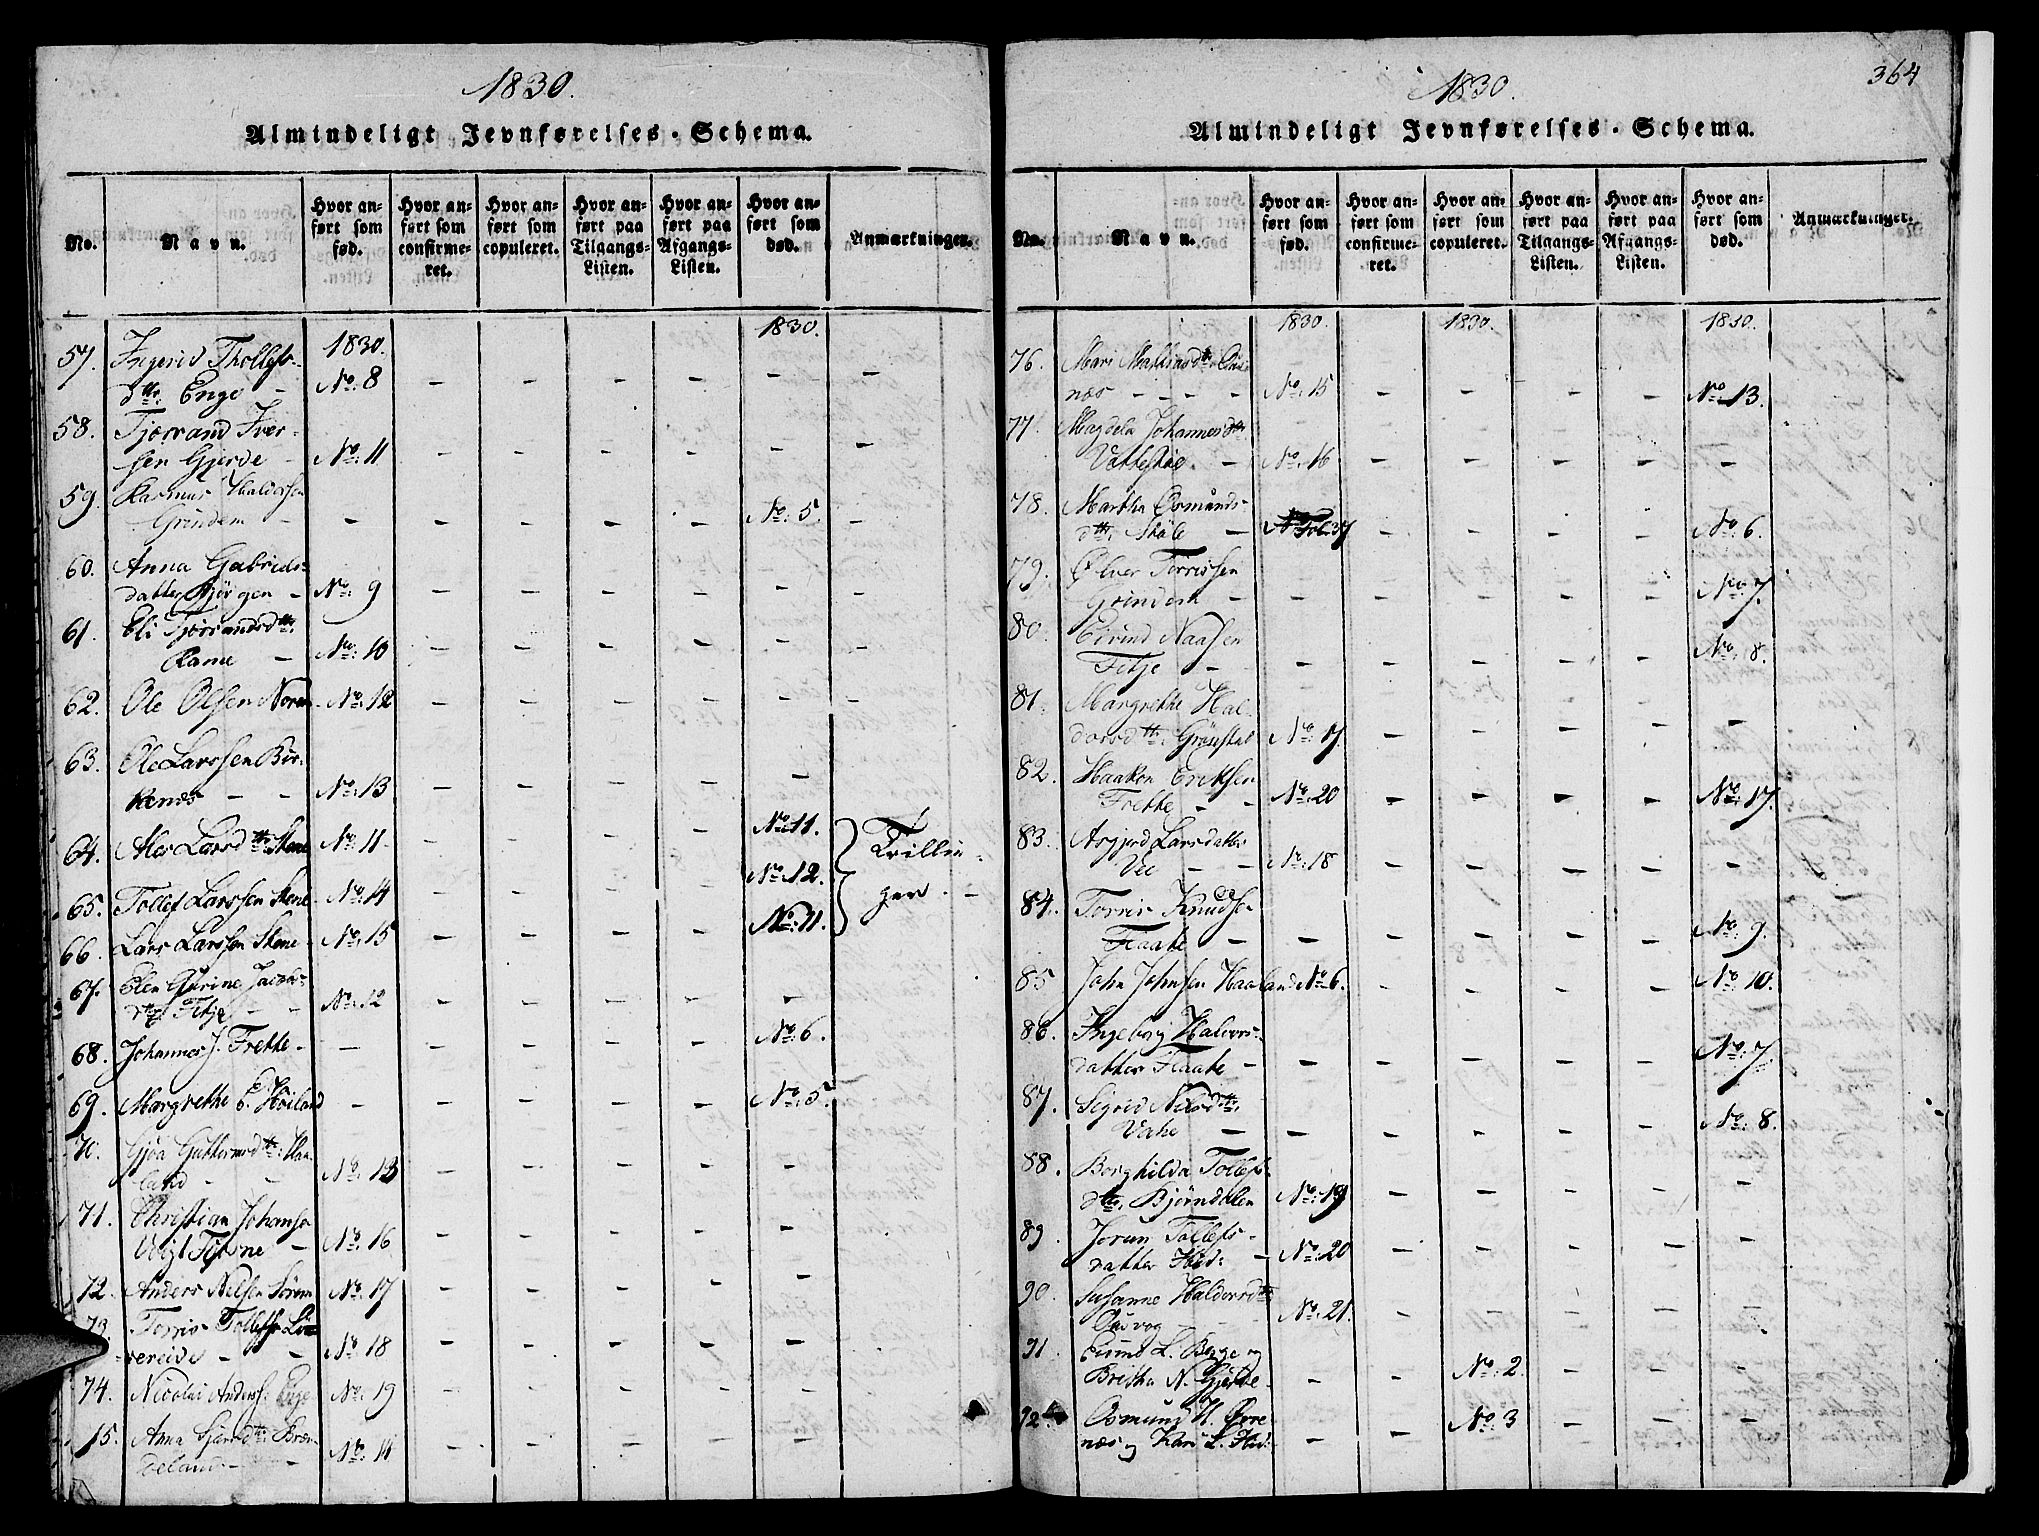 1830.
Almindeligt Jevnførelses-Schema.
No.
Navn.
Hvor anført som fød.
Hvor anført som confirmeret.
Hvor anført som copuleret.
Hvor anført paa Tilgangs-Listen.
Hvor anført paa Afgangs-Listen.
Hvor anført som død.
Anmærkninger.
1830. 1830.
57. Ingerid Thollefs-
dtr. Enge - No. 8 - - - - - -
58. Tjorrand Iver-
sen Gjerde - No. 11 - - - - - -
59. Rasmus Haldorsen
Grindem - - - - - - No. 5. -
60. Anna Gabriels-
datter Bjørgen - No. 9 - - - - - -
61. Eli Tjørrandsdtr.
Rame - No. 10 - - - - - -
62. Ole Olsen Norem - No. 12 - - - - - -
63. Ole Larssen Bir-
kenæs - - No. 13 - - - - -
64. Ales Larsdtr. Skene No. 11. - - - - No. 11. Trillin-
65. Tollef Larssen Skene No. 14 - - - - No. 12. ger. -
66. Lars Larssen Skene - No. 15 - - - - No. 11.
67. Elen Gurine Jacobs-
dtr. Fitje - - No. 12 - - - - -
68. Johannes J. Frette - - - - - - No. 6.
69. Margrethe E. Høiland - - - - - No. 5.
70. Gjøa Guttormsdtr. Haa-
land - - No. 13 - - - - -
71. Christian Johanse
Voigt Tjerne - No. 16 - - - - -
72. Anders Nilsen Sørem No. 17 - - - - -
73. Torris Tollefs. Lø-
vereide - - No. 18 - - - - -
74. Nicolai Anders. Enge No. 19 - - - - -
15. Anna dtr.
land - - No. 14 - - - - -
364
1830.
Almindeligt Jevnførelses-Schema.
No.
Navn.
Hvor anført som fød.
Hvor anført som confirmeret.
Hvor anført som copuleret.
Hvor anført paa Tilgangs-Listen.
Hvor anført paa Afgangs-Listen.
Hvor anført som død.
Anmærkninger.
1830. 1830. 1830.
76. Mari Mathiasdtr.
næs - - - - No. 15 - - - - No. 13.
77. Magdela Johannesdtr.
Vattestøe. - No. 16 - - - - -
78. Martha Osmunds-
dtr. Støle - Fol. 37 - - - - No. 6.
79. Ølver Torrissen
Grindem - - - - - - No. 7.
80. Eivind Naasen
Fitje - - - - - - No. 8.
81. Margrethe Hal-
dorsdtr. Grønstad No. 17. - - - - -
82. Haakon Eriksen
Frette - - No. 20 - - - - No. 17.
83. Asgjerd Larsdatter
Vee - - No. 18 - - - - -
84. Torris Knudse
Flaate - - - - - - No. 9.
85 John Johnsen Haaland No. 6. - - - - No. 10.
86. Ingeborg Halvors-
datter Flaate - - - - - - No. 7.
87. Sigrid Nilsdtr.
Vahe - - - - - - No. 8.
88. Borghilda Tollefs-
dtr. Bjørndalen No. 19 - - - - -
89. Jorun Tollefs-
datter - No. 20 - - - - -
90. Susanne Haldorsdtr.
Osvog - - No. 21. - - - - -
91. Eivind L. Berge og
Britha N. Gjerde - - - No. 2. - - -
92. Osmund H. Øvre-
næs og Kari L. - - No. 3 - - -